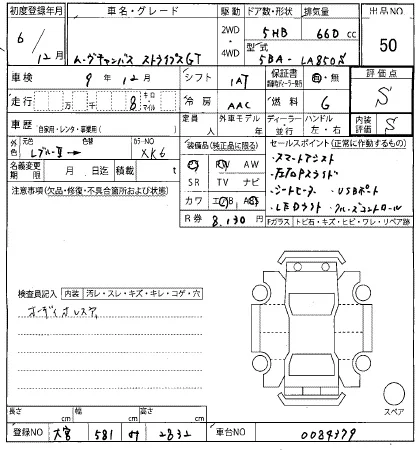 初度登録年月 車名・グレード 駆動 ドア数・形状 排気量 出品NO
6/12月 ムーヴキャンバス ストライプスGT 2WD・4WD 5HB 660cc 50
型式 5BA-LA850S
車検 9年12月 シフト IAT 保証書 有・無 評価点 S
走行 万 千 8 キロ・マイル 冷房 AAC 燃料 G
定員 人 外車モデル 年 ディーラー・並行 ハンドル 左・右 内装評価 S
車歴 (自家用・レンタ・事業用( ))
外色 元色 色替 カラーNO XK6
装備品(純正品に限る)
セールスポイント(正常に作動するもの)
・スマートアシスト
・シートヒーター ・USBポート
・LEDライト ・クルーズコントロール
PS PW AW
SR TV ナビ
カワ エアB ABS
名義変更期限 月 日迄 積載 t
R券 8,130円
注意事項(欠品・修復・不具合箇所および状態)
Fガラス トビ石・キズ・ヒビ・ワレ・リペア跡
検査員記入 内装 汚レ・スレ・キズ・キレ・コゲ・穴
オーディオレス
スペア
長さ cm 幅 cm 高さ cm
登録NO 大宮 581 2832 車台NO 0084379